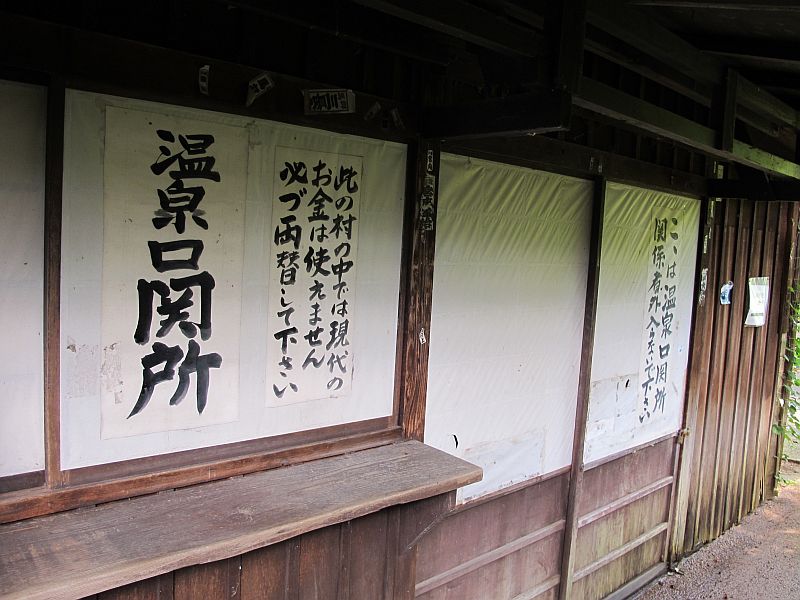 温泉口関所
此の村の中では現代の
お金は使えません
必づ両替して下さい
こゝは温泉口関所
関係者外入らないで下さい